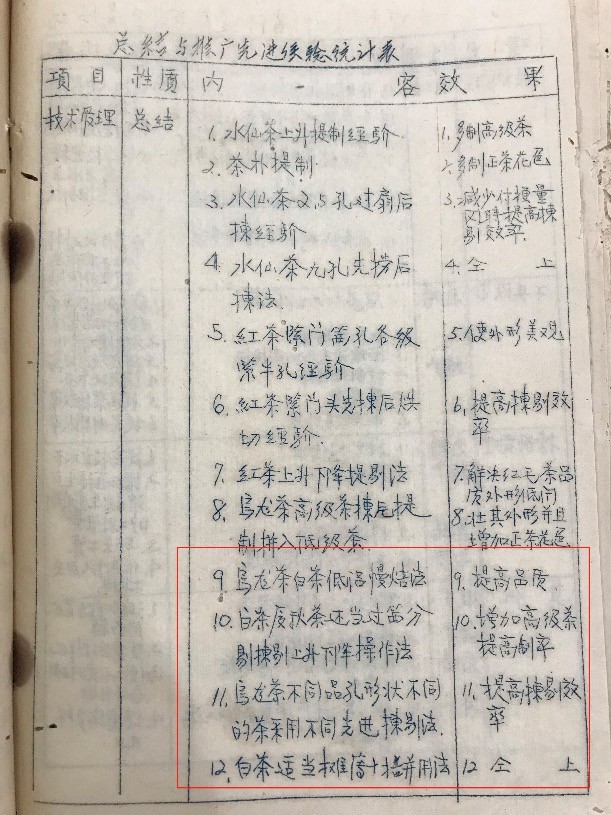 总结与推广先进经验统计表
項目 性质 内容 效果
技术管理 总结
1. 水仙茶上升提制经验 1. 多制高级茶
2. 茶朴提制 2. 多制正茶花色
3. 水仙茶2.5孔过扇后 3. 减少付梗量
拣经验 同時提高拣
剔效率.
4. 水仙茶九孔先捞后 4. 仝上
拣法.
5. 紅茶緊门筛孔各级 5. 使外形美观
緊半孔经验
6. 紅茶緊门头先拣后烘 6. 提高拣剔效
切经验. 率
7. 紅茶上升下降提剔法 7. 解决红毛茶品
质外形低
8. 烏龙茶高级茶拣后提 8. 壮其外形并且
制拼入低级茶. 增加正茶花色
9. 烏龙茶白茶低温慢焙法 9. 提高品质.
10. 白茶夏秋茶适当过筛分 10. 增加高级茶
剔拣剔上升下降操作法 提高制率
11. 烏龙茶不同品孔形状不同 11. 提高拣剔效
的茶采用不同先进拣剔法. 率
12. 白茶适当 并用法 12 仝上